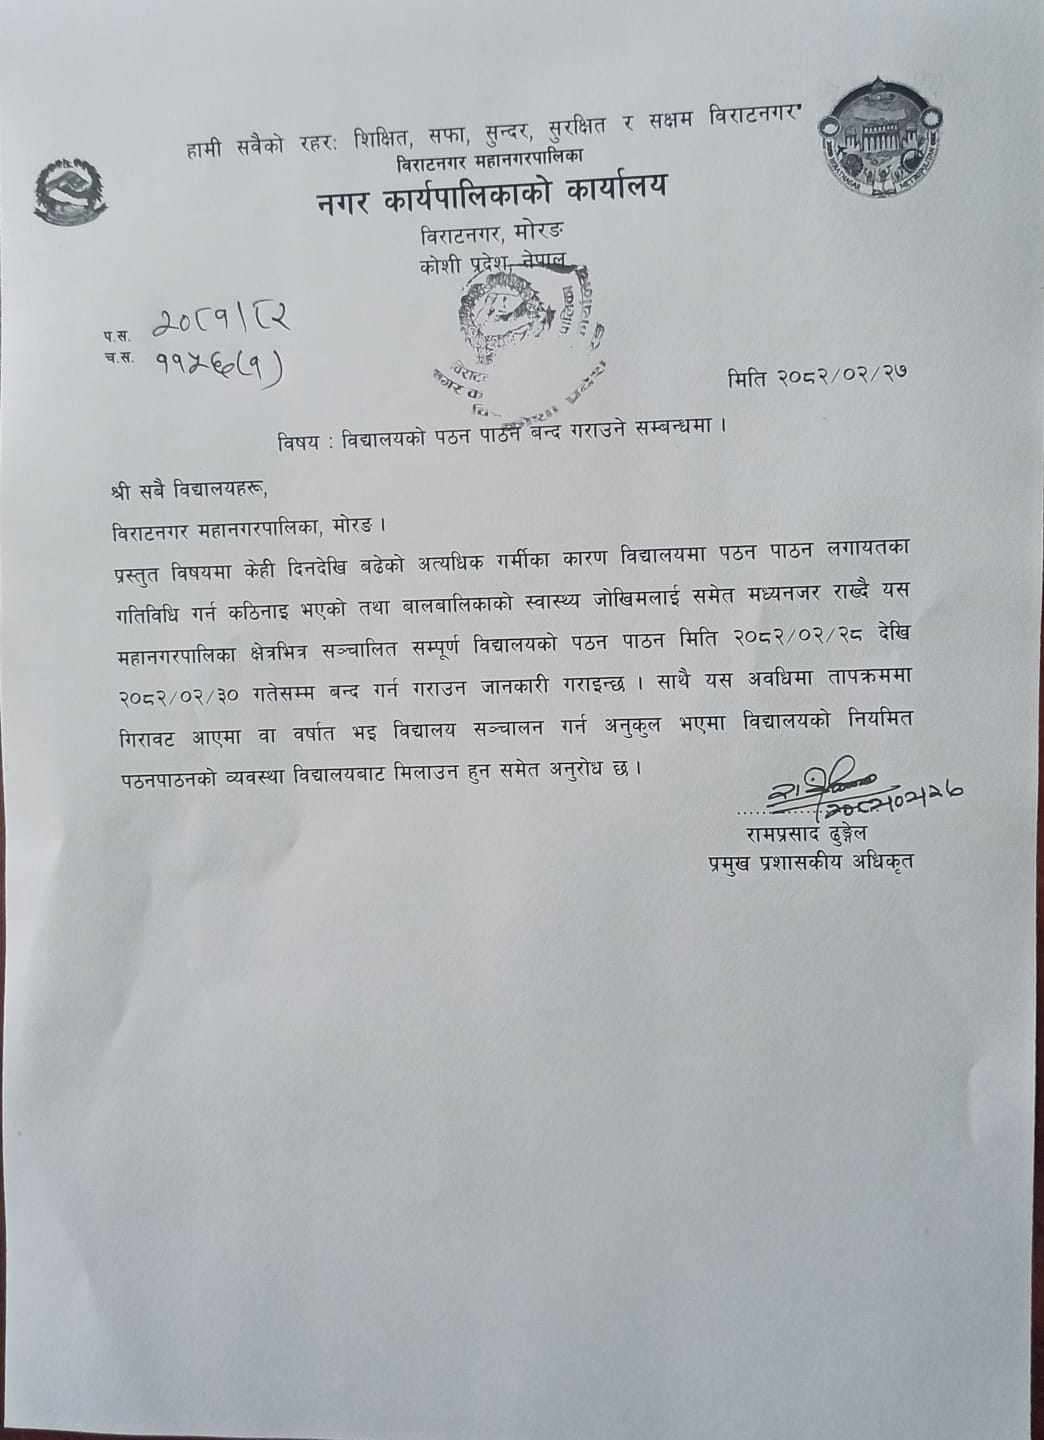 हामी सवैको रहर: शिक्षित, सफा, सुन्दर, सुरक्षित र सक्षम विराटनगर"
विराटनगर महानगरपालिका
नगर कार्यपालिकाको कार्यालय
विराटनगर, मोरङ
कोशी प्रदेश, नेपाल
BIRATNAGAR METROPOLITAN
प.स. २०८१/८२
च.स. ११५६(१)
मिति २०८२/०२/२७
विषय : विद्यालयको पठन पाठन बन्द गराउने सम्बन्धमा ।
श्री सबै विद्यालयहरू,
विराटनगर महानगरपालिका, मोरङ ।
प्रस्तुत विषयमा केही दिनदेखि बढेको अत्यधिक गर्मीका कारण विद्यालयमा पठन पाठन लगायतका
गतिविधि गर्न कठिनाइ भएको तथा बालबालिकाको स्वास्थ्य जोखिमलाई समेत मध्यनजर राख्दै यस
महानगरपालिका क्षेत्रभित्र सञ्चालित सम्पूर्ण विद्यालयको पठन पाठन मिति २०८२/०२/२८ देखि
२०८२/०२/३० गतेसम्म बन्द गर्न गराउन जानकारी गराइन्छ । साथै यस अवधिमा तापक्रममा
गिरावट आएमा वा वर्षात भइ विद्यालय सञ्चालन गर्न अनुकुल भएमा विद्यालयको नियमित
पठनपाठनको व्यवस्था विद्यालयबाट मिलाउन हुन समेत अनुरोध छ ।
रामप्रसाद ढुङ्गेल
प्रमुख प्रशासकीय अधिकृत